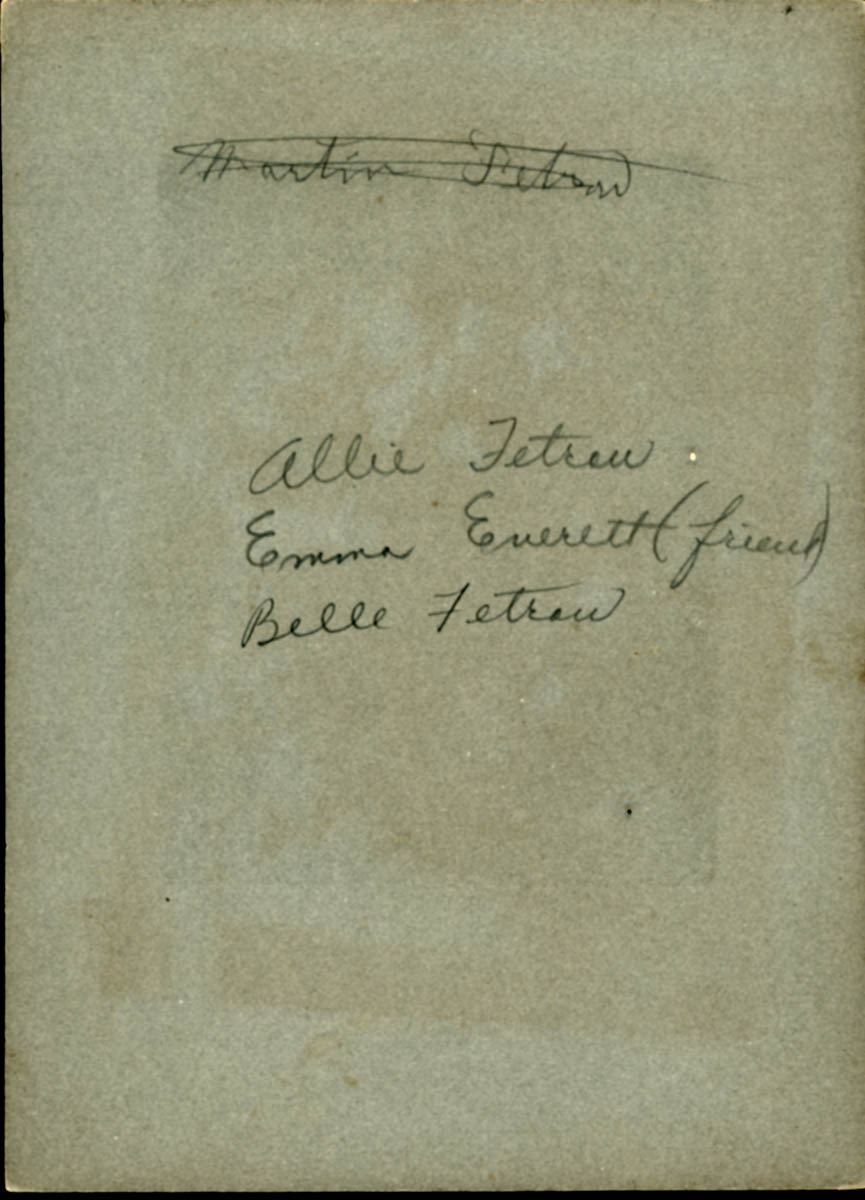 Martin Fetrow
Allie Fetrow
Emma Everett (friend)
Belle Fetrow